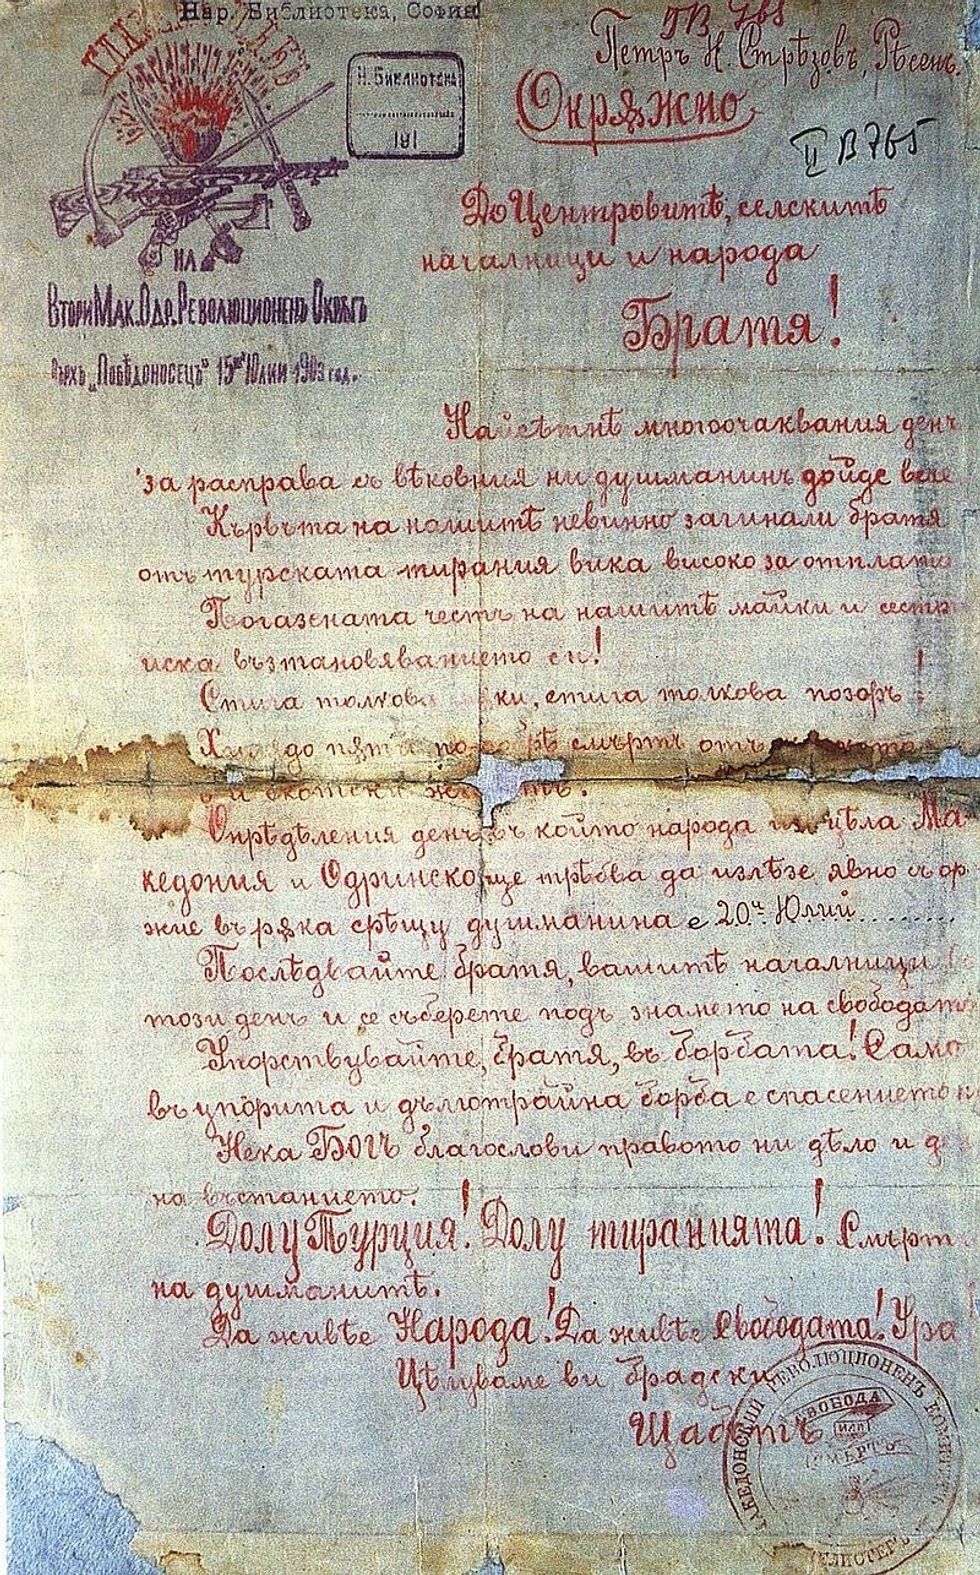 Нар. Библиотека, София
ГВ 765
Петръ Н. Стрѣзовъ, Рѣсенъ.
Н. Библиотека
191
Окрѫжно
II В 765
До Центровитѣ, селскитѣ
началници и народа
НА
Втори Мак. Одр. Революционенъ Окрѫгъ
Върхъ „Побѣдоносецъ" 15ий Юлий 1903 год.
Братя!
Найсѣтнѣ многоочаквания день
за расправа съ вѣковния ни душманинъ дойде вече
Кървъта на нашитѣ невинно загинали братя
отъ турската тирания вика високо за отплата
Погазената честь на нашитѣ майки и сестри
иска възтановяванието си!
Стига толкова мѫки, стига толкова позоръ!
смърть отъ
и скотски
Опрѣдѣления день въ който народа изъ цѣла Ма
кедония и Одринско ще трѣбва да излѣзе явно съ орѫ
жие въ рѫка срѣщу душманина е 20й Юлий........
Послѣдвайте братя, вашитѣ началници
този день и се съберете подъ знамето на свободата
Упорствувайте, братя, въ борбата! Само
въ упорита и дълготрайна борба е спасението н
Нека Богъ благослови правото ни дѣло и де
на въстанието.
Долу Турция! Долу тиранията! Смърть
на душманитѣ.
Да живѣе Народа! Да живѣе Свободата! Ура
Цѣлуваме ви брадски
Щабътъ
МАКЕДОНСКИЙ РЕВОЛЮЦИОНЕНЪ КОМИТЕТЪ
СВОБОДА
ИЛИ
СМЪРТЬ